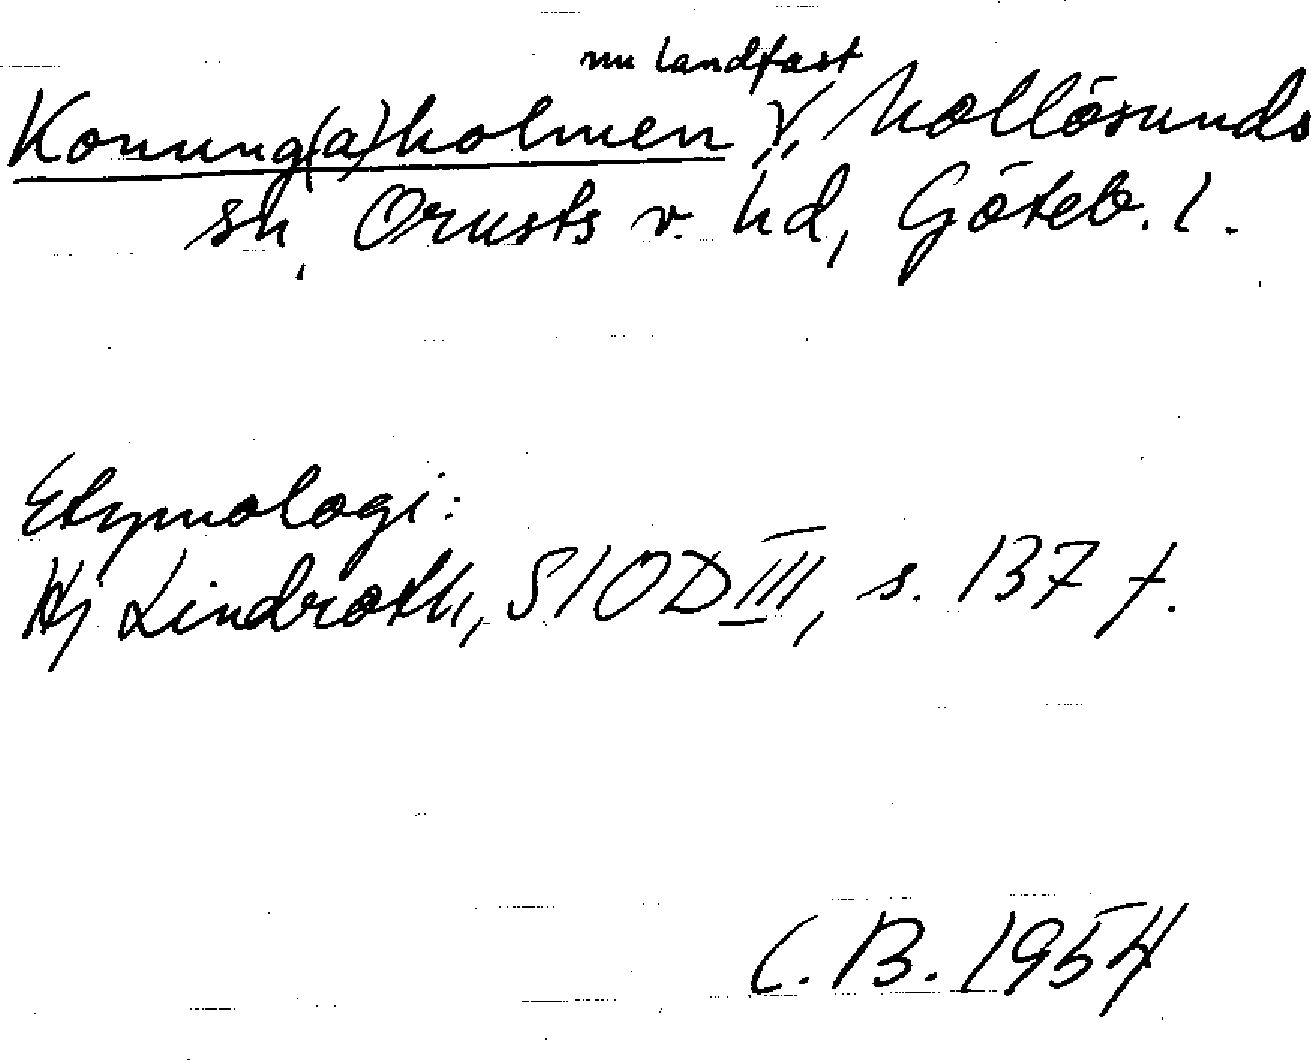 nu landfast
Konung(a)holmen, Mollösunds
sn, Orusts v. hd, Göteb. l.
Etymologi:
Hj Lindroth, SIOD III, s. 137 f.
C. B. 1954